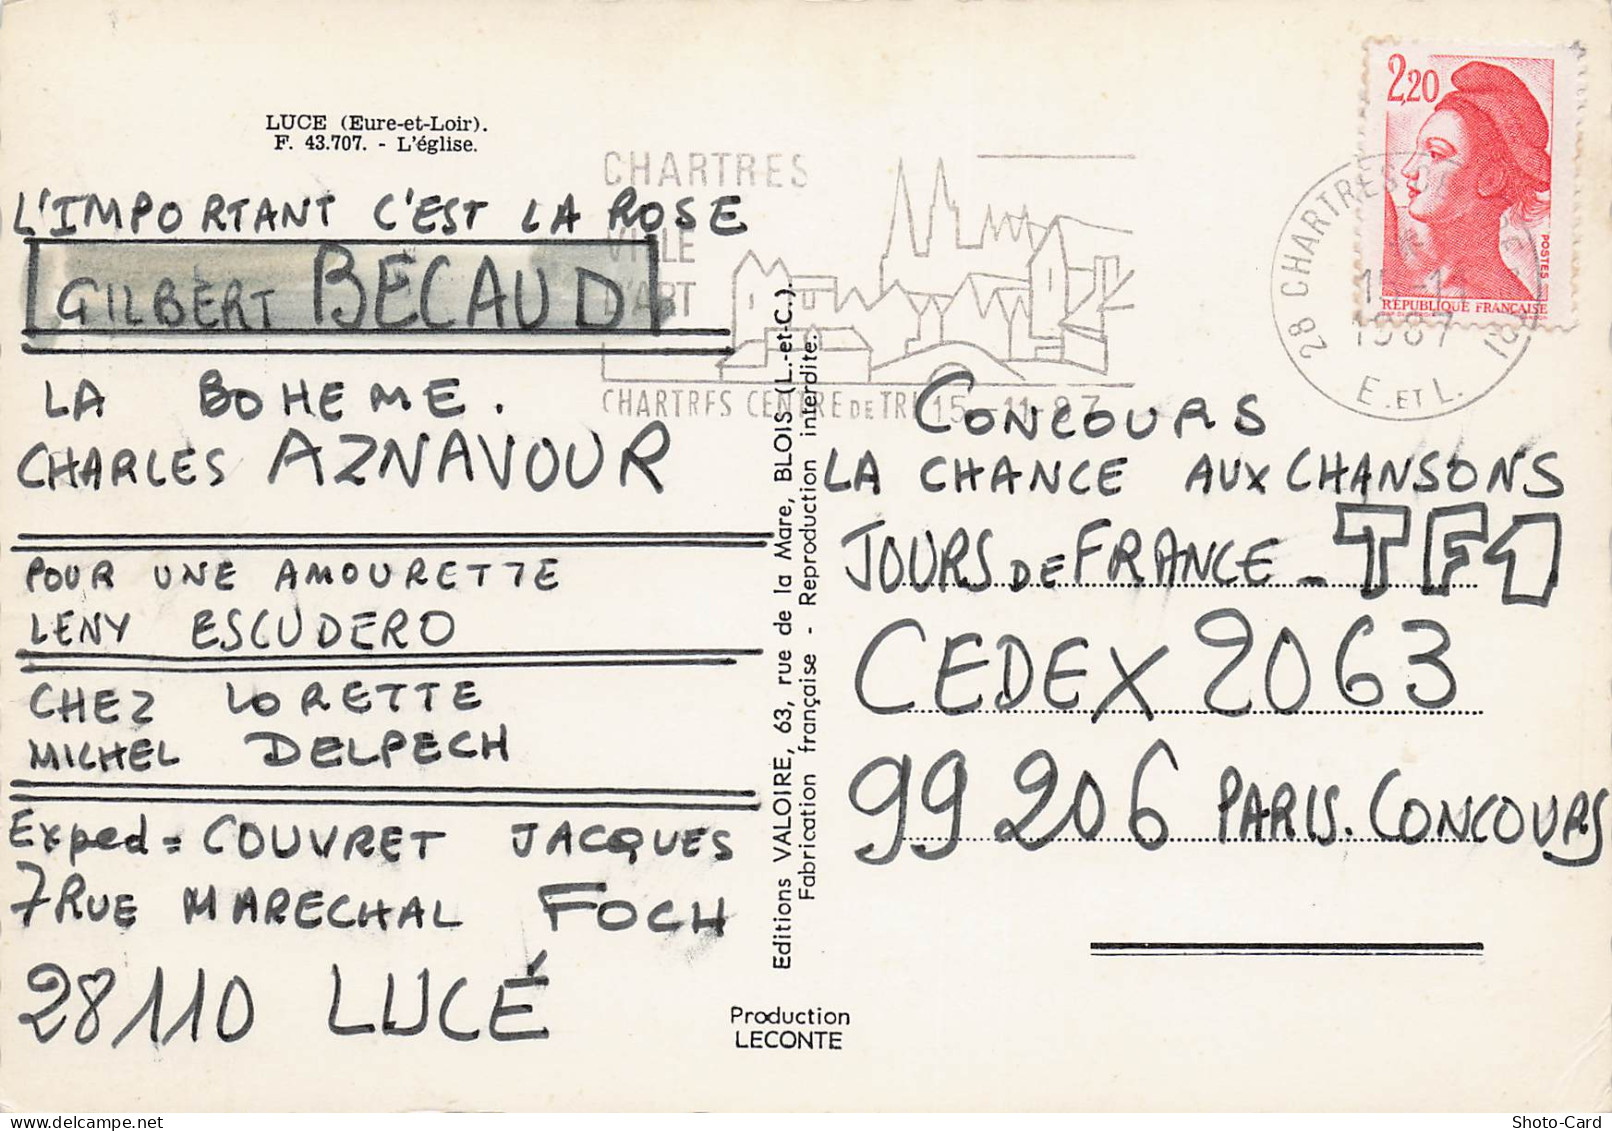 LUCE (Eure-et-Loir).
F. 43.707. - L'église.
L'IMPORTANT C'EST LA ROSE
GILBERT BECAUD
LA BOHEME.
CHARLES AZNAVOUR
POUR UNE AMOURETTE
LENY ESCUDERO
CHEZ LORETTE
MICHEL DELPECH
Exped = COUVRET JACQUES
7 RUE MARECHAL FOCH
28110 LUCÉ
CHARTRES
VILLE
D'ART
CHARTRES CENTRE DE TRI 15-11-87
Editions VALOIRE, 63, rue de la Mare, BLOIS (L.-et-C.).
Fabrication française - Reproduction interdite.
Production
LECONTE
2,20
POSTES
RÉPUBLIQUE FRANÇAISE
28 CHARTRES
1987
E. ET L.
CONCOURS
LA CHANCE AUX CHANSONS
JOURS DE FRANCE - TF1
CEDEX 2063
99 206 PARIS. CONCOURS
Shoto-Card